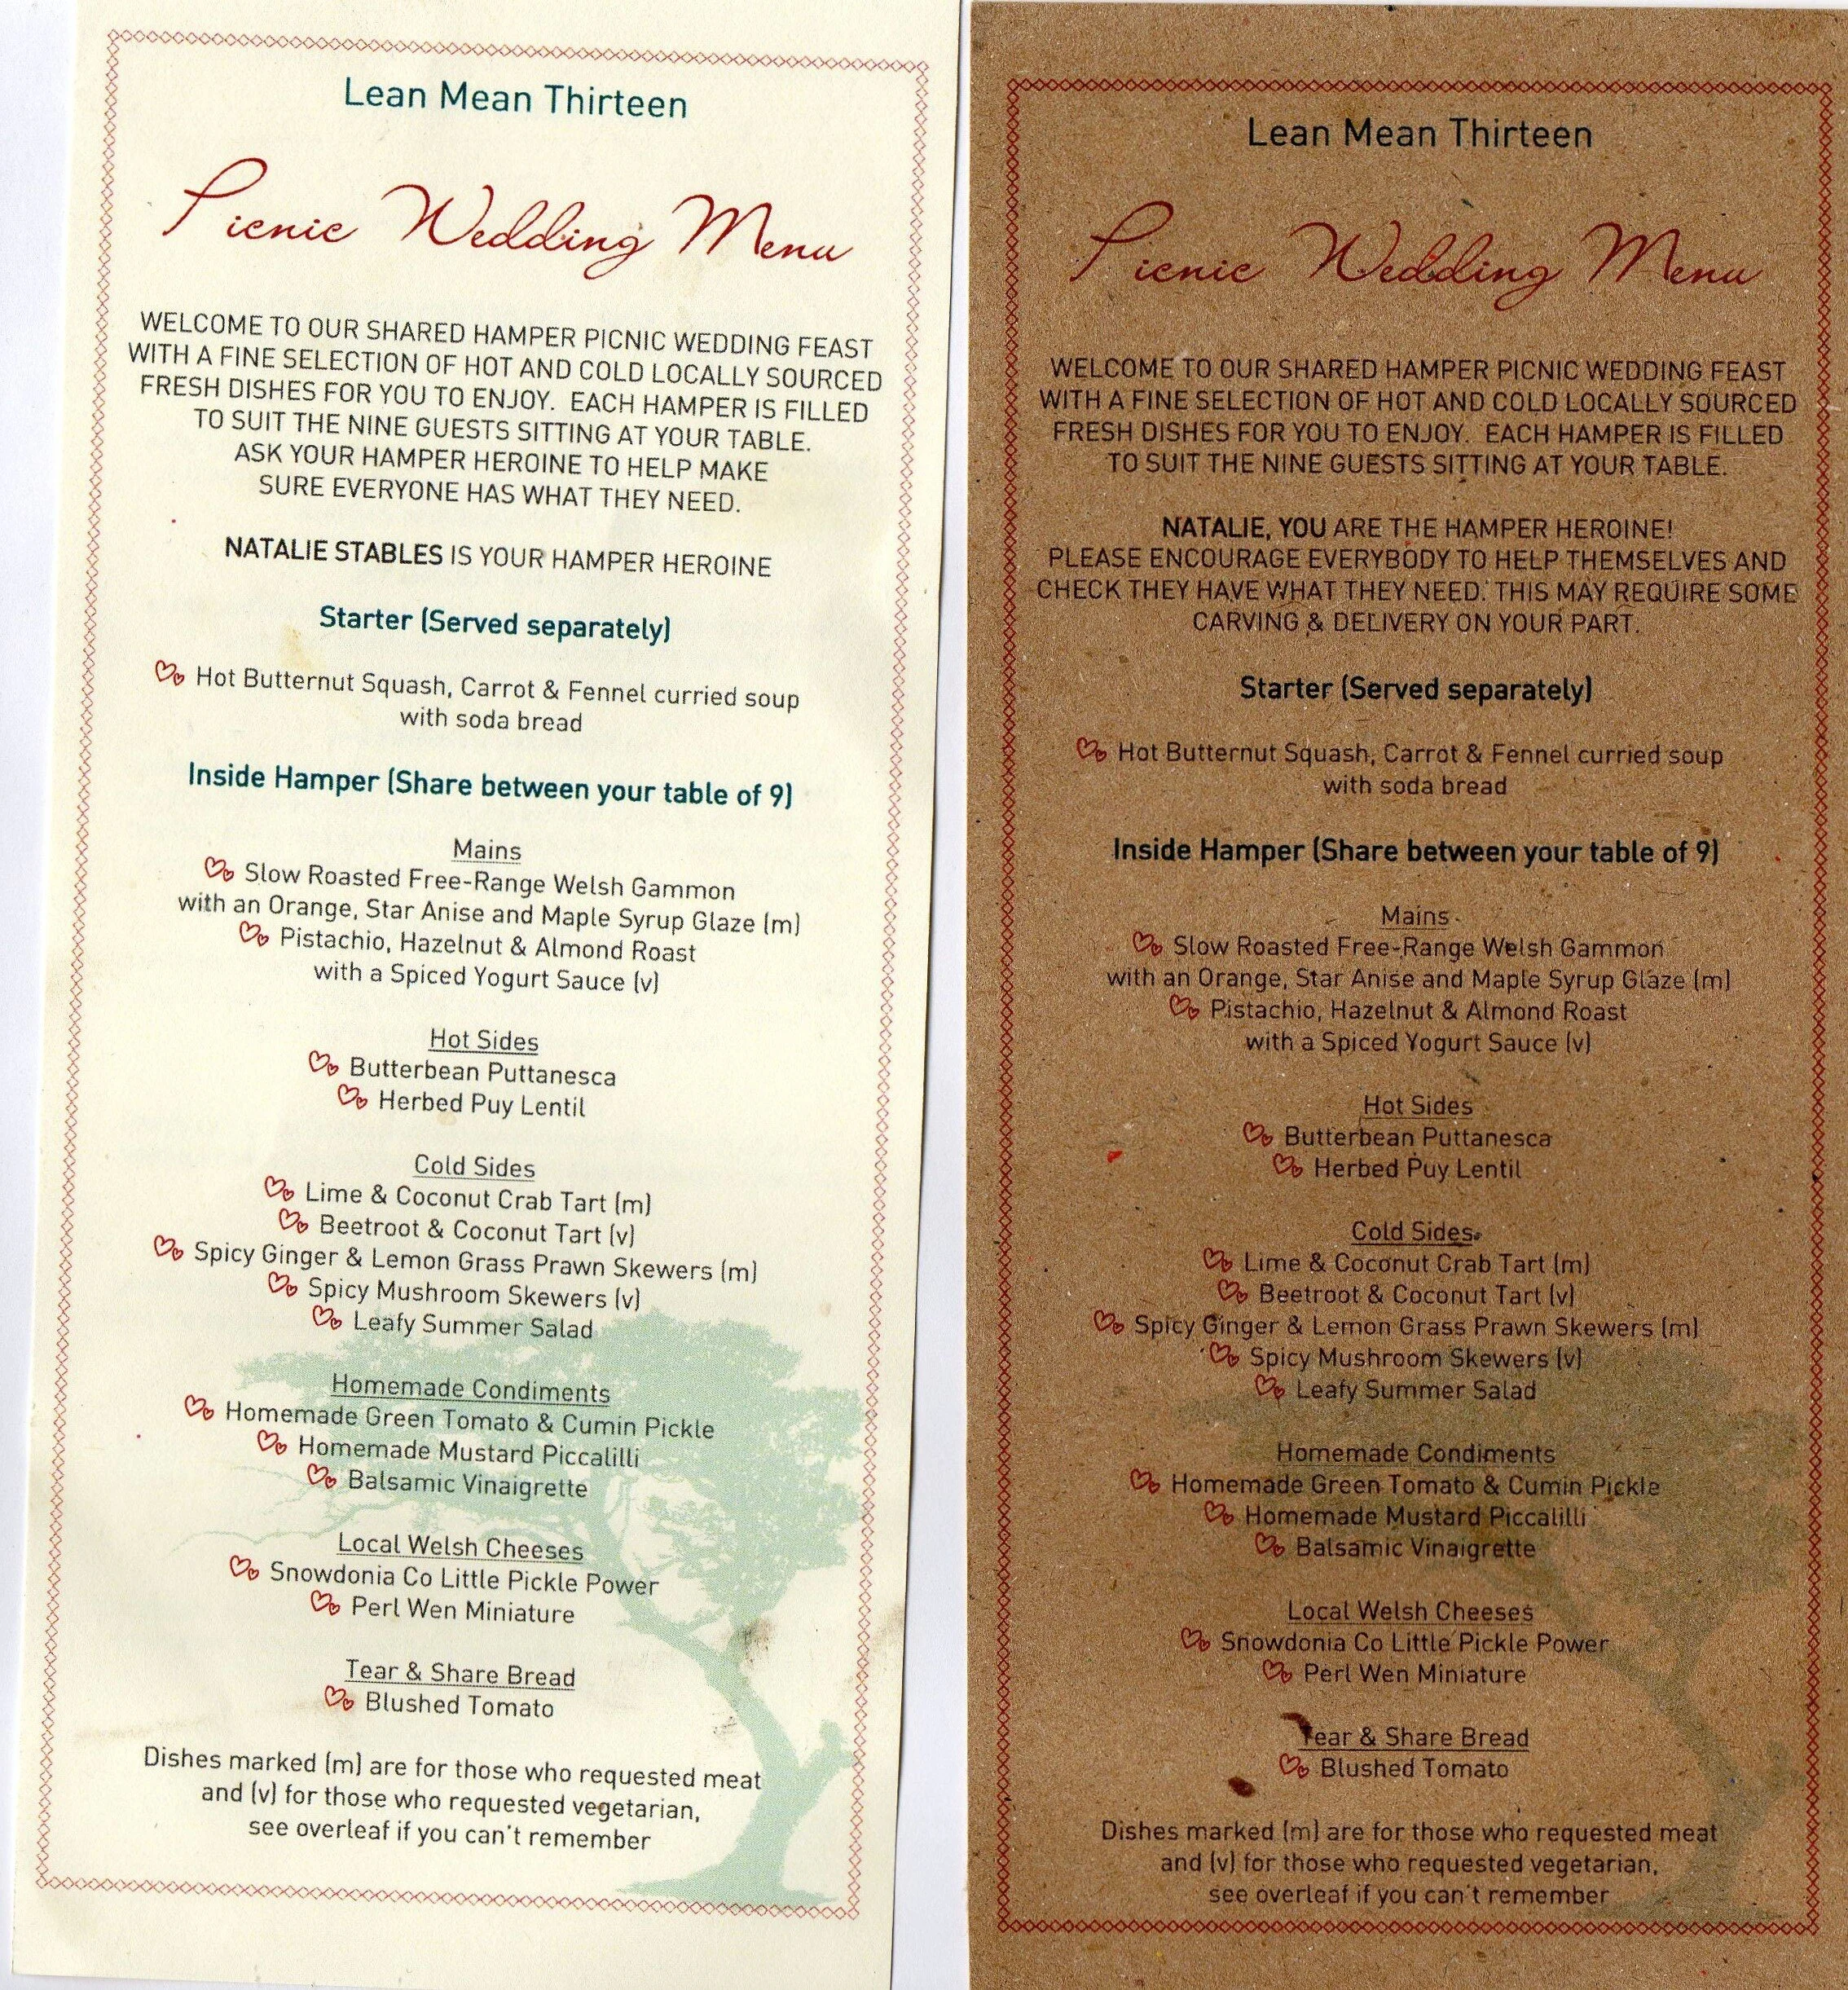 Lean Mean Thirteen
Picnic Wedding Menu
WELCOME TO OUR SHARED HAMPER PICNIC WEDDING FEAST
WITH A FINE SELECTION OF HOT AND COLD LOCALLY SOURCED
FRESH DISHES FOR YOU TO ENJOY. EACH HAMPER IS FILLED
TO SUIT THE NINE GUESTS SITTING AT YOUR TABLE.
ASK YOUR HAMPER HEROINE TO HELP MAKE
SURE EVERYONE HAS WHAT THEY NEED.
NATALIE STABLES IS YOUR HAMPER HEROINE
Starter (Served separately)
Hot Butternut Squash, Carrot & Fennel curried soup
with soda bread
Inside Hamper (Share between your table of 9)
Mains
Slow Roasted Free-Range Welsh Gammon
with an Orange, Star Anise and Maple Syrup Glaze (m)
Pistachio, Hazelnut & Almond Roast
with a Spiced Yogurt Sauce (v)
Hot Sides
Butterbean Puttanesca
Herbed Puy Lentil
Cold Sides
Lime & Coconut Crab Tart (m)
Beetroot & Coconut Tart (v)
Spicy Ginger & Lemon Grass Prawn Skewers (m)
Spicy Mushroom Skewers (v)
Leafy Summer Salad
Homemade Condiments
Homemade Green Tomato & Cumin Pickle
Homemade Mustard Piccalilli
Balsamic Vinaigrette
Local Welsh Cheeses
Snowdonia Co Little Pickle Power
Perl Wen Miniature
Tear & Share Bread
Blushed Tomato
Dishes marked (m) are for those who requested meat
and (v) for those who requested vegetarian,
see overleaf if you can't remember
Lean Mean Thirteen
Picnic Wedding Menu
WELCOME TO OUR SHARED HAMPER PICNIC WEDDING FEAST
WITH A FINE SELECTION OF HOT AND COLD LOCALLY SOURCED
FRESH DISHES FOR YOU TO ENJOY. EACH HAMPER IS FILLED
TO SUIT THE NINE GUESTS SITTING AT YOUR TABLE.
NATALIE, YOU ARE THE HAMPER HEROINE!
PLEASE ENCOURAGE EVERYBODY TO HELP THEMSELVES AND
CHECK THEY HAVE WHAT THEY NEED. THIS MAY REQUIRE SOME
CARVING & DELIVERY ON YOUR PART.
Starter (Served separately)
Hot Butternut Squash, Carrot & Fennel curried soup
with soda bread
Inside Hamper (Share between your table of 9)
Mains
Slow Roasted Free-Range Welsh Gammon
with an Orange, Star Anise and Maple Syrup Glaze (m)
Pistachio, Hazelnut & Almond Roast
with a Spiced Yogurt Sauce (v)
Hot Sides
Butterbean Puttanesca
Herbed Puy Lentil
Cold Sides
Lime & Coconut Crab Tart (m)
Beetroot & Coconut Tart (v)
Spicy Ginger & Lemon Grass Prawn Skewers (m)
Spicy Mushroom Skewers (v)
Leafy Summer Salad
Homemade Condiments
Homemade Green Tomato & Cumin Pickle
Homemade Mustard Piccalilli
Balsamic Vinaigrette
Local Welsh Cheeses
Snowdonia Co Little Pickle Power
Perl Wen Miniature
Tear & Share Bread
Blushed Tomato
Dishes marked (m) are for those who requested meat
and (v) for those who requested vegetarian,
see overleaf if you can't remember